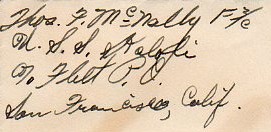 Thos. F. McNally F 2/c
U. S. S. Kaloli
% Fleet P. O.
San Francisco, Calif.